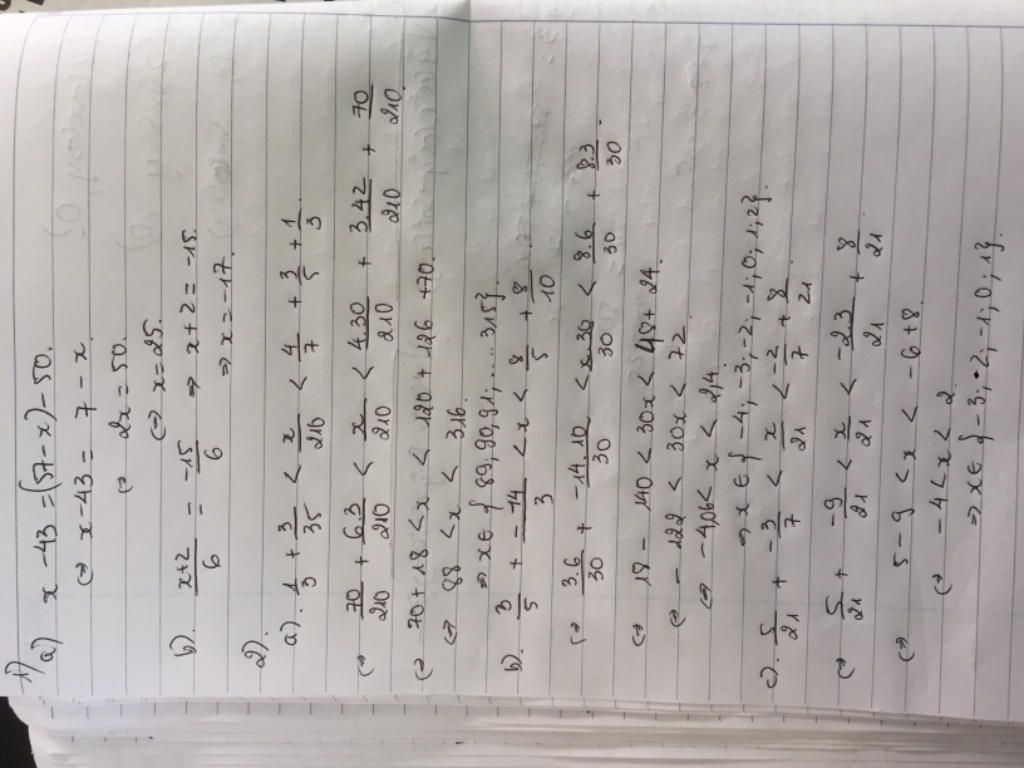 1)
a) x - 43 = (57 - x) - 50.
(=) x - 43 = 7 - x
(=) 2x = 50.
(=) x = 25.
b). x+2/6 = -15/6 => x + 2 = -15.
=> x = -17.
2).
a). 1/3 + 3/35 < x/210 < 4/7 + 3/5 + 1/3.
(=) 70/210 + 6.3/210 < x/210 < 4.30/210 + 3.42/210 + 70/210
(=) 70 + 18 < x < 120 + 126 + 70.
(=) 88 < x < 316.
=> x ∈ { 89, 90, 91, ... 315}.
b). 3/5 + -14/3 < x < 8/5 + 8/10
(=) 3.6/30 + -14.10/30 < x.30/30 < 8.6/30 + 8.3/30.
(=) 18 - 140 < 30x < 48 + 24.
(=) - 122 < 30x < 72.
(=) - 4,06 < x < 2,4.
=> x ∈ { -4, -3, -2, -1, 0, 1, 2}.
c). 5/21 + -3/7 < x/21 < -2/7 + 8/21
(=) 5/21 + -9/21 < x/21 < -2.3/21 + 8/21
(=) 5 - 9 < x < - 6 + 8.
(=) - 4 < x < 2.
=> x ∈ { -3, -2, -1, 0, 1}.